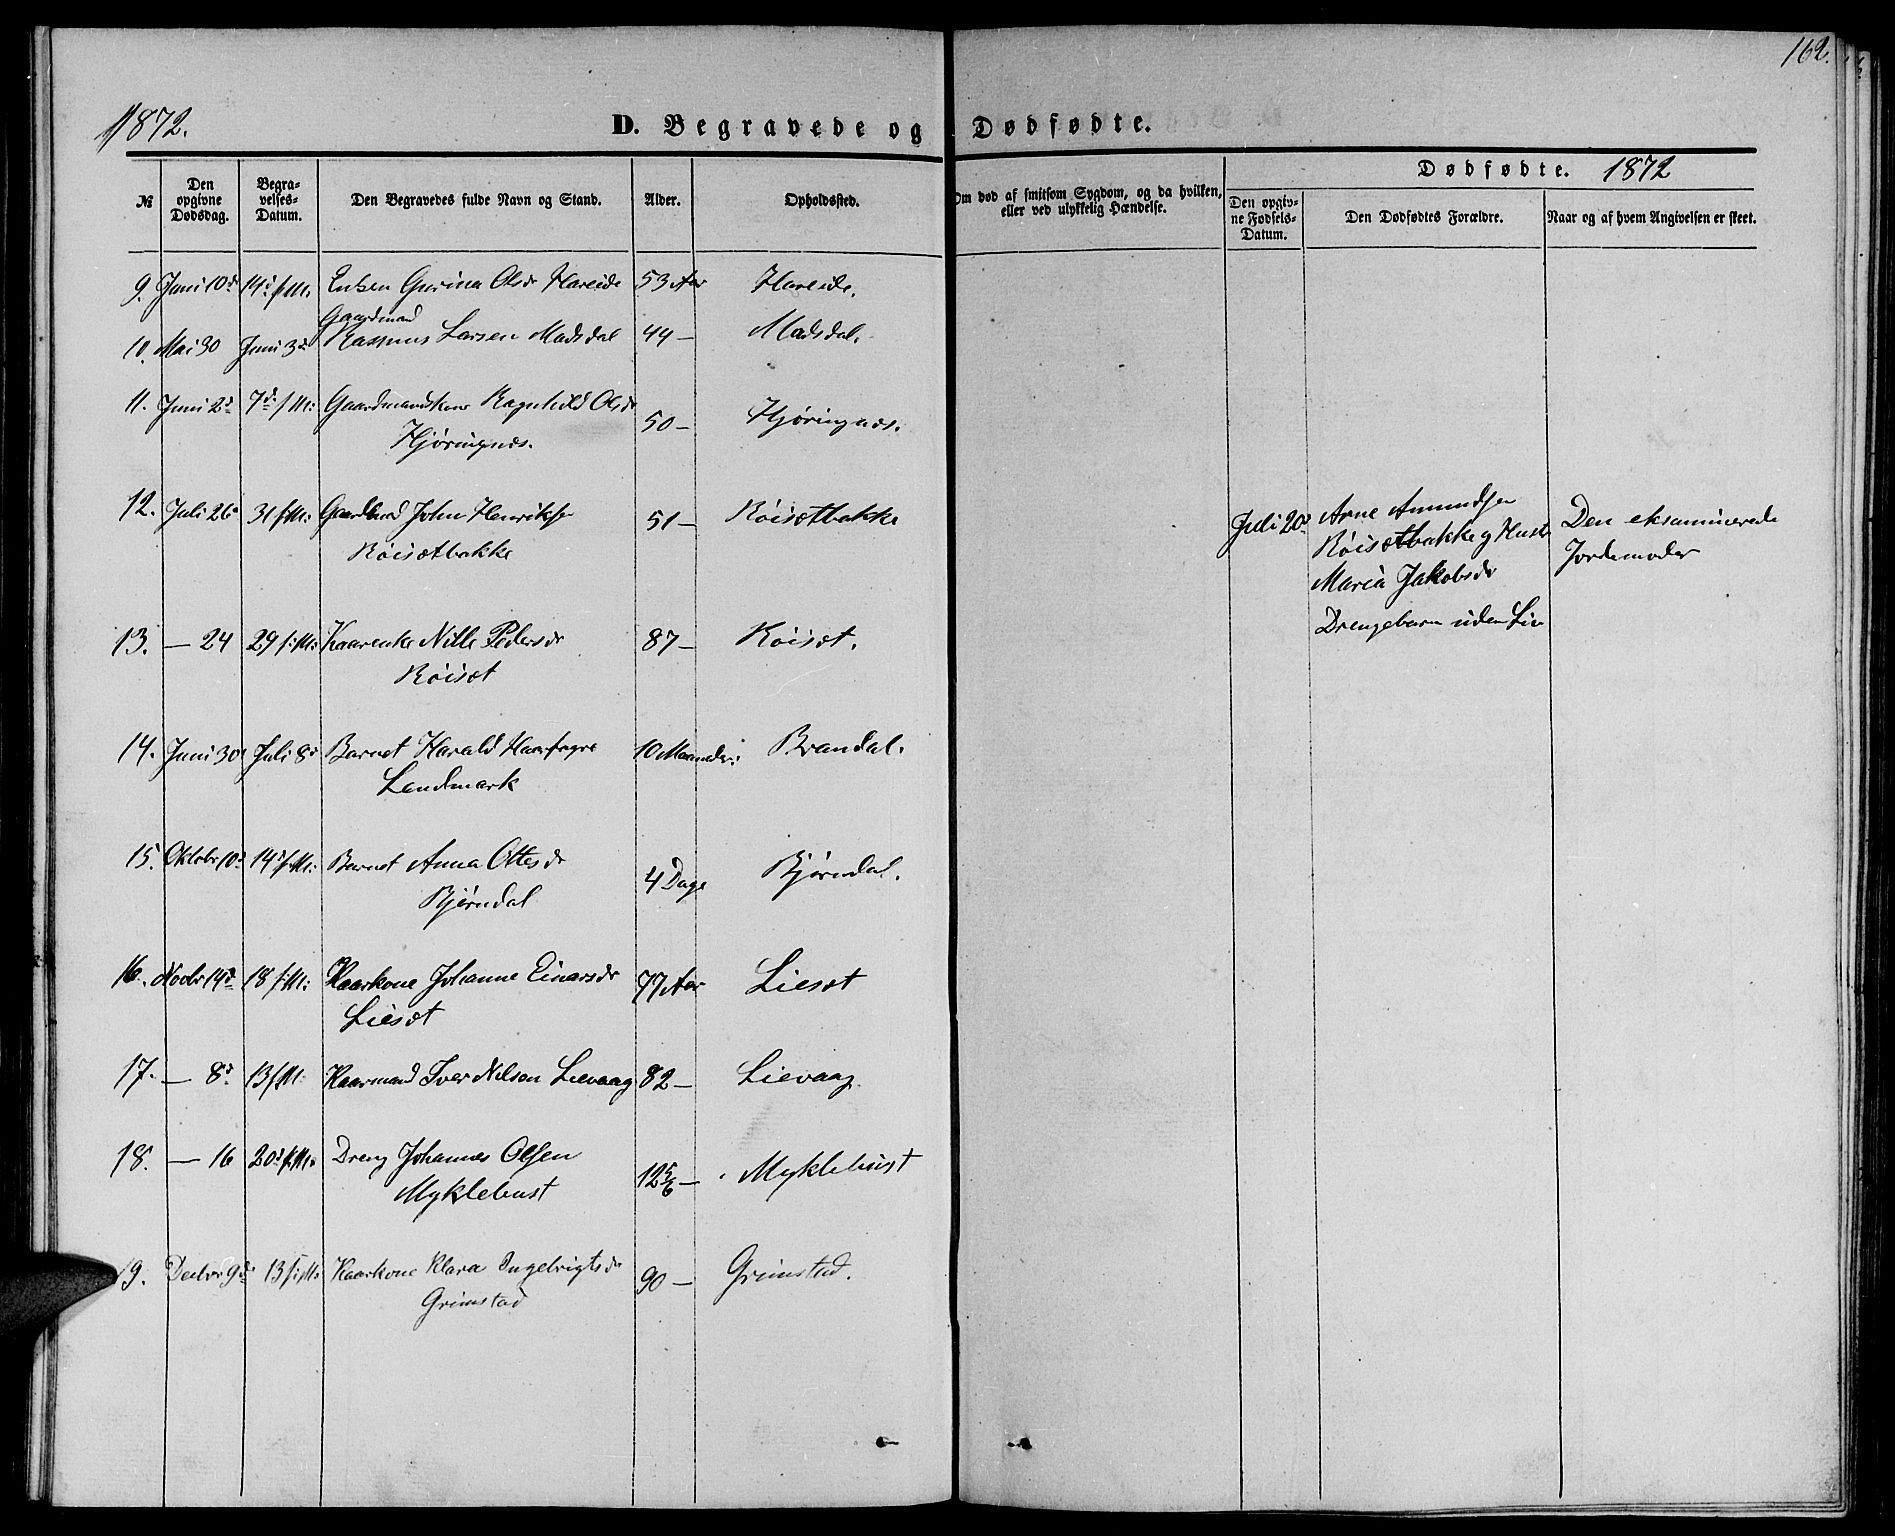 162.
1872.
D. Begravede og Dødfødte.
Dødfødte. 1872
№
Den opgivne Dødsdag.
Begra-velses-Datum.
Den Begravedes fulde Navn og Stand.
Alder.
Opholdssted.
Om død af smitsom Sygdom, og da hvilken, eller ved ulykkelig Hændelse.
Den opgiv-ne Fødsels-Datum.
Den Dødfødtes Forældre.
Naar og af hvem Angivelsen er skeet.
9. Juni 10d 14d s. M. Enken Gurina Olsdr Hareide 53 Aar Hareide.
Gaardmand
10. Mai 30 Juni 3d Rasmus Larsen Madsdal 44 — Madsdal.
11. Juni 2d 7d s. M: Gaardmandskone Ragnhild Olsdr 50 — Hjøringnæs.
Hjøringnæs.
12. Juli 26d 31 s. M: Gaardmand John Henriksen 51 — Röisætbakke
Röisætbakke
Juli 20d Arne Amundsen
Röisætbakke og Hustr
Maria Jakobsdr
Drengebarn uden Liv
Den eksaminerede
Jordemoder
13. — 24 29 s: M: Kaarenke Nille Pedersdr 87 — Röisæt.
Röisæt
14. Juni 30d Juli 8d Barnet Harald Haarfagre 10 Maaneder: Brandal.
Landmark
15. Oktobr 10d 14d s. M: Barnet Anna Ottesdr 4 Dage Bjørndal.
Bjørndal
16. Novbr 14d 18 s. M: Kaarkone Johanne Einarsdr 77 Aar Liesæt
Liesæt
17. — 8d. 13 s. M: Kaarmand Iver Nilsen Lievaag 82 — Lievaag.
18. — 16 20d s. M: Dreng Johannes Olsen 12 5/6 — Myklebust
Myklebust
19. Decbr 9d 13 s: M: Kaarkone Klara Ingebrigtsdr 90 — Grimstad.
Grimstad